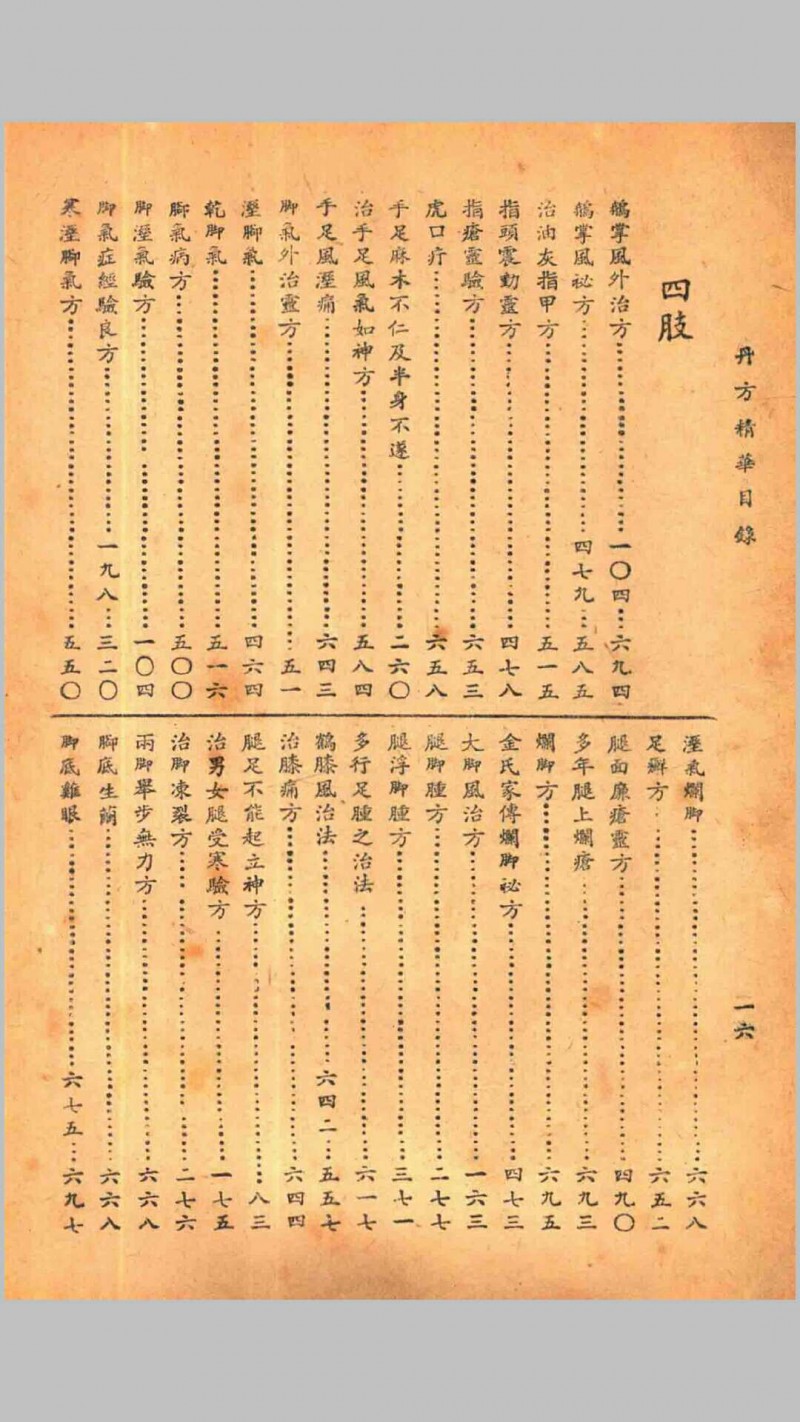 丹方精華目錄
一六
四肢
鵝掌風外治方……一〇四…六九四
鵝掌風祕方……四七九…五八五
治油灰指甲方……五一五
指頭震動靈方……四七八
指瘡靈驗方……六五三
虎口疔……六五八
手足麻木不仁及半身不遂……二六〇
治手足風氣如神方……五八四
手足風溼痛……六四三
脚氣外治靈方……五一
溼脚氣……四六四
乾脚氣……五一六
脚氣病方……五〇〇
脚溼氣驗方……一〇四
脚氣症經驗良方……一九八…三二〇
寒溼脚氣方……五五〇
溼氣爛脚……六六八
足癬方……六五二
腿面廉瘡靈方……四九〇
多年腿上爛瘡……六九三
爛脚方……六九五
金氏家傳爛脚祕方……四七三
大脚風治方……一六三
腿脚腫方……二七七
腿浮脚腫方……三七一
多行足腫之治法……六一七
鶴膝風治法……六四二…五五七
治膝痛方……六四四
腿足不能起立神方……八三
治男女腿受寒驗方……一七五
治脚凍裂方……二七六
兩脚舉步無力方……六六八
脚底生繭……六六八
脚底雞眼……六七五…六九七